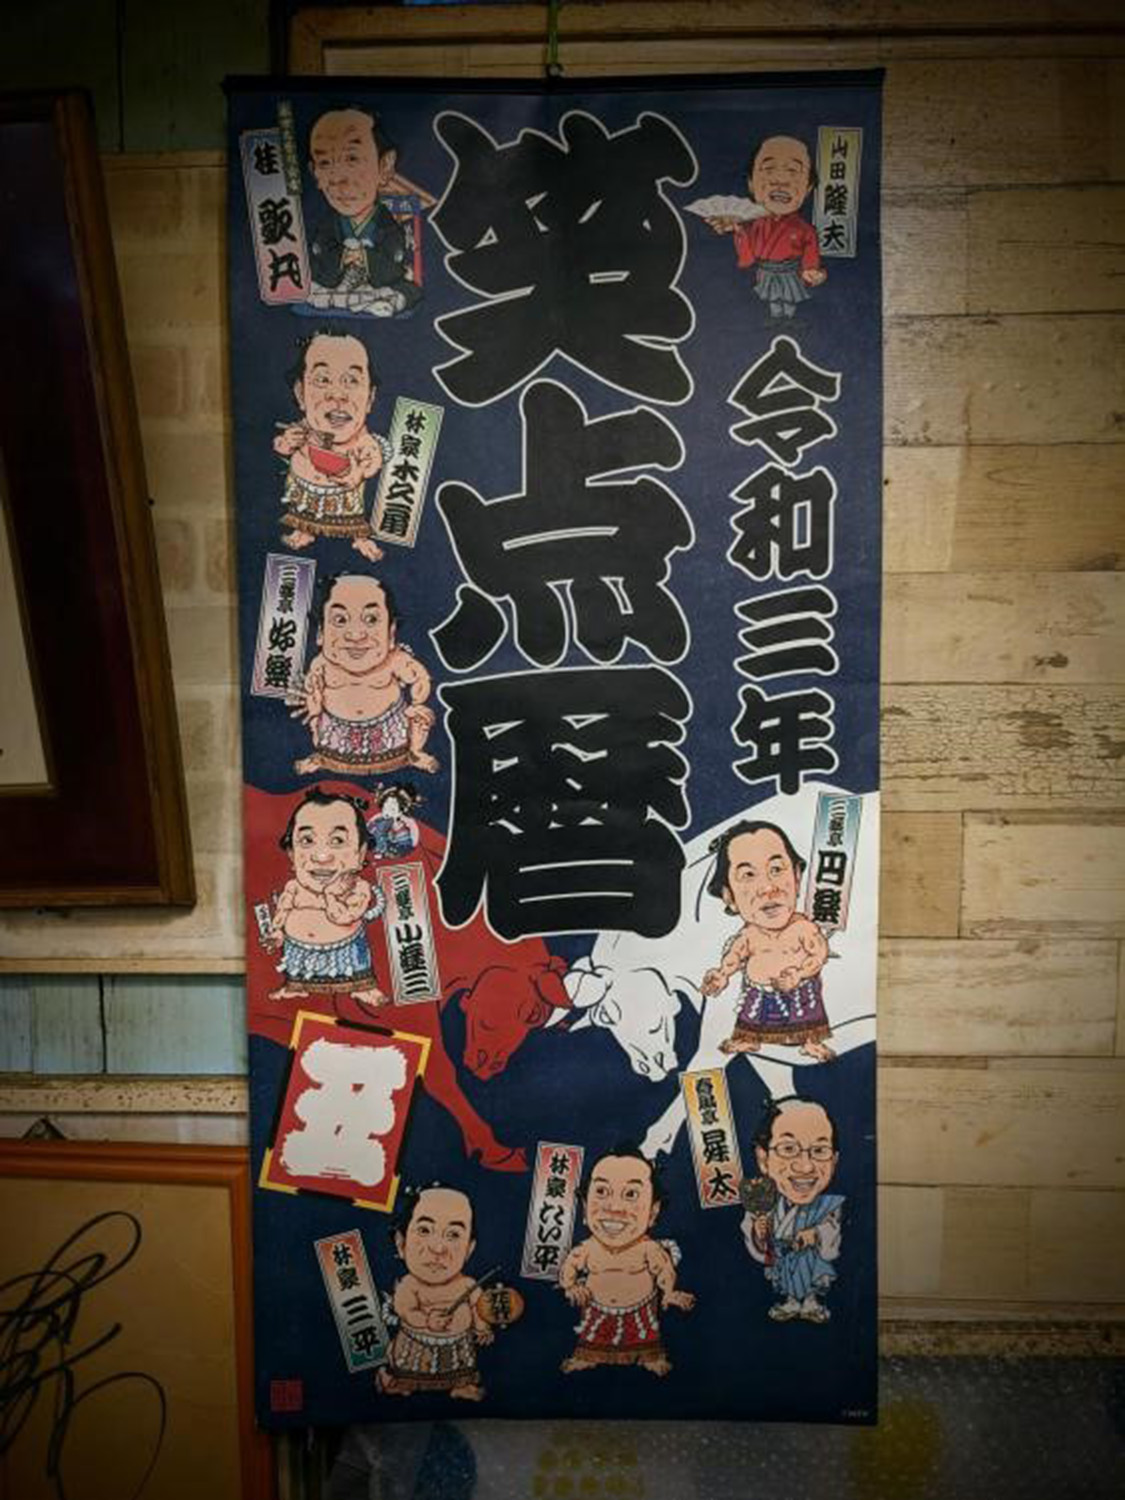 笑点暦
令和三年
山田隆夫
桂歌丸
林家木久扇
三遊亭好楽
三遊亭小遊三
三遊亭円楽
丑
春風亭昇太
林家たい平
林家三平